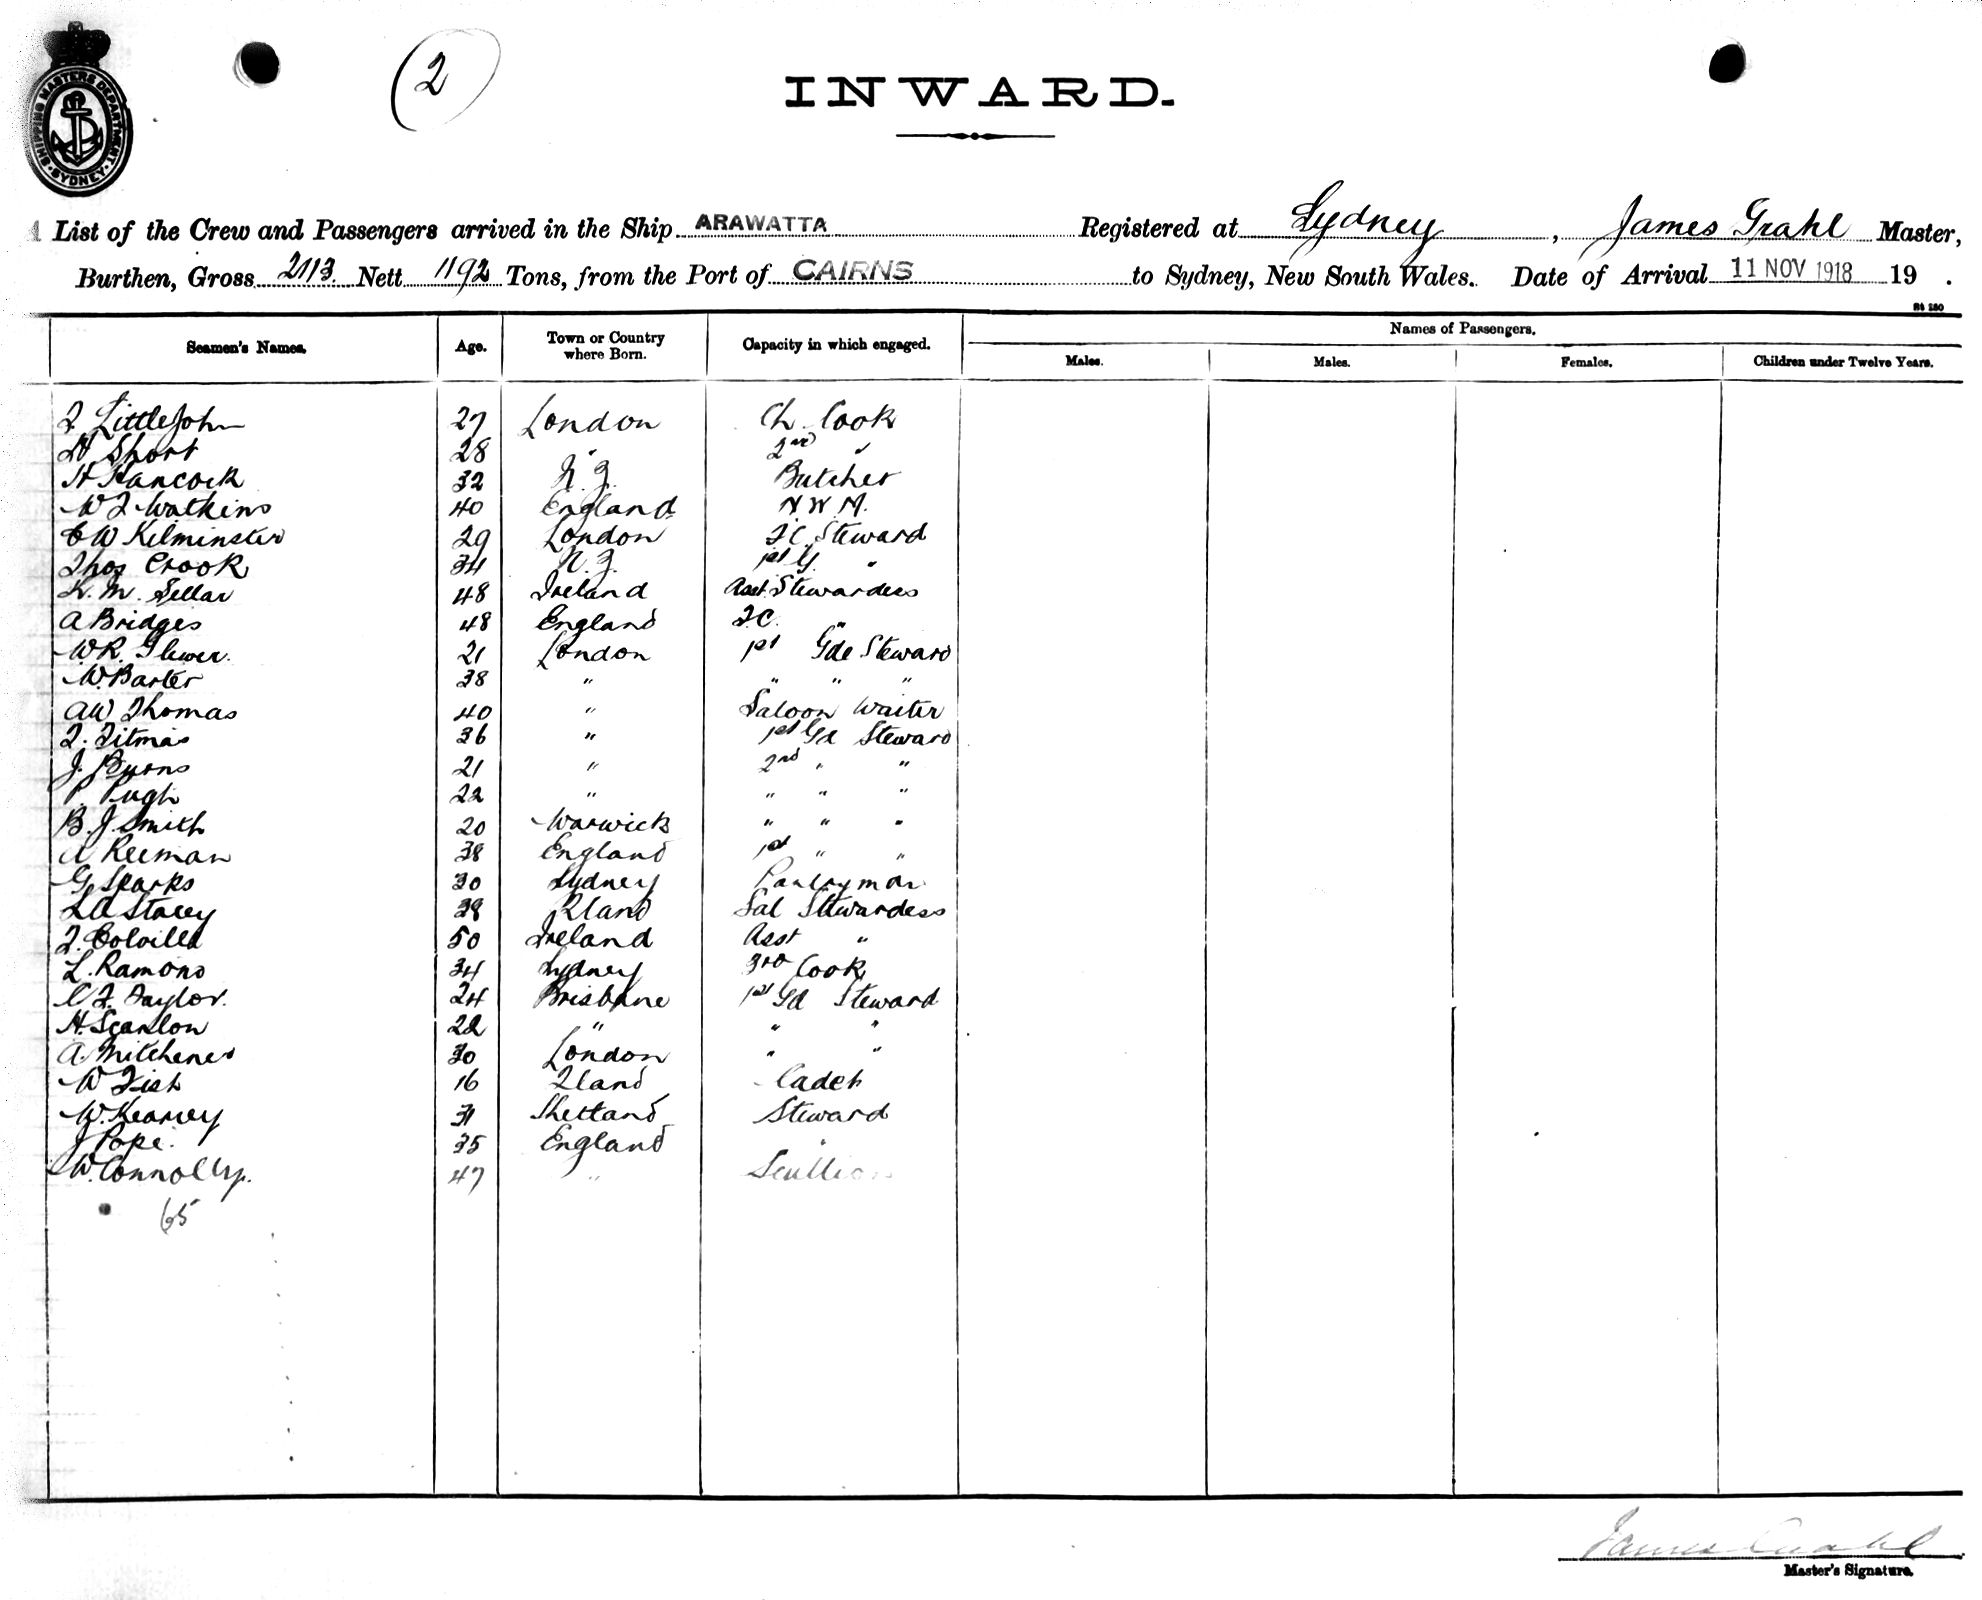 SHIPPING MASTERS DEPARTMENT
SYDNEY
2
INWARD.
List of the Crew and Passengers arrived in the Ship ARAWATTA Registered at Sydney, James Grahl Master,
Burthen, Gross 2113 Nett 1192 Tons, from the Port of CAIRNS to Sydney, New South Wales. Date of Arrival 11 NOV 1918 19 .
Seamen's Names. Age. Town or Country where Born. Capacity in which engaged. Names of Passengers.
Males. Males. Females. Children under Twelve Years.
Littlejohn 27 London Ch. Cook
H Short 28 " 2nd "
H Hancock 32 N.Z. Butcher
W J Watkins 40 England N.W.M.
C W Kilminster 29 London Steward
Thos Crook 34 N.Z. 1st G. "
Sellar 48 Ireland Asst Stewardess
A Bridges 48 England "
W.R. 21 London 1st Gde Steward
W. Barter 38 " " " "
AW Thomas 40 " Saloon Waiter
Titmas 36 " 1st Gd Steward
J. Byrons 21 " 2nd " "
P. Pugh 22 " " " "
B. J Smith 20 Warwick " " "
A Reeman 38 England 1st " "
G Sparks 30 Sydney Pantryman
L A Stacey 38 Sal Stewardess
Colville 50 Ireland Asst "
L. Ramono 34 Sydney 3rd Cook
Taylor. 24 Brisbane 1st Gd Steward
H. Scanlon 22 " " "
A. Mitchener 30 London " "
W Fish 16 Cadet
W. Kearsey 31 Shetland Steward
J Pope. 35 England "
W. Connolly. 47 " Scullion
65
James Grahl
Master's Signature.